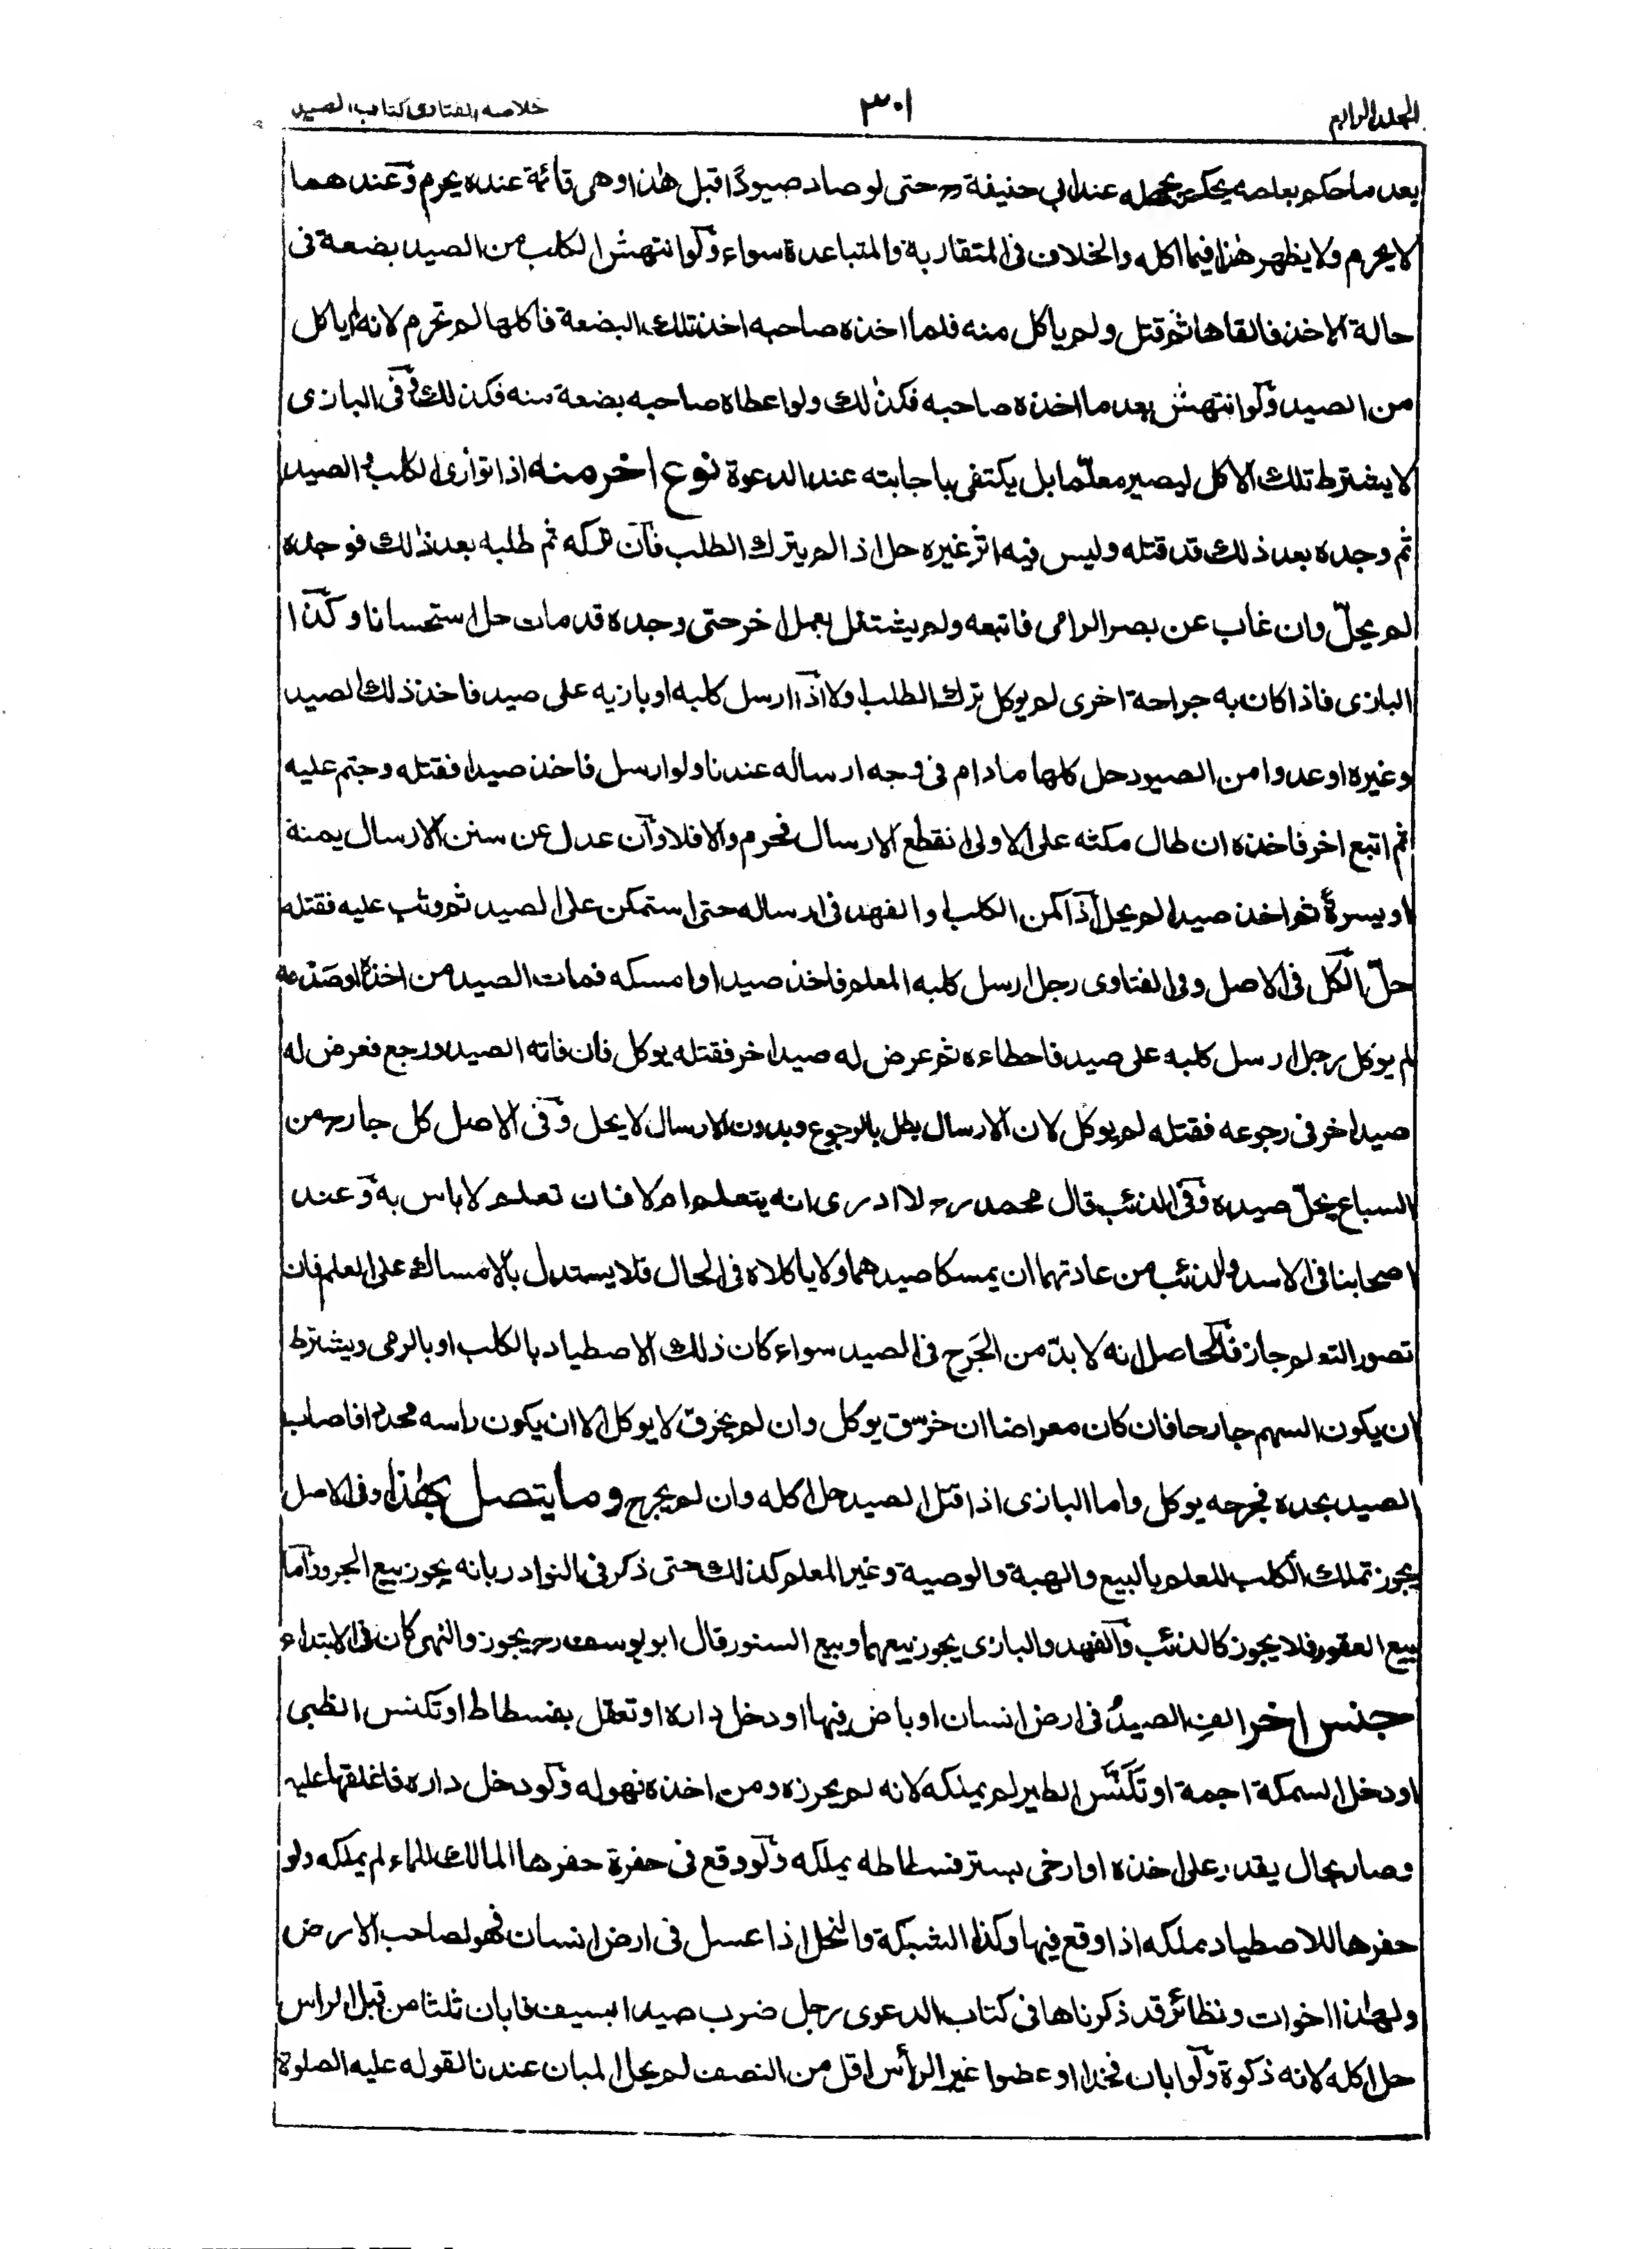 المجلد الرابع
٣٠١
خلاصه الفتاوى كتاب الصيد
بعد ما حكم بعلمه يحكم بجهله عند ابى حنيفة رح حتى لو صاد صيودًا قبل هٰذا وهى قائمة عنده يحرم وعندهما
لا يحرم ولا يظهر هٰذا فيما اكله والخلاف فى المتقاربة والمتباعدة سواء ولو انتهش الكلب من الصيد بضعة فى
حالة الاخذ فالقاها ثم قتل ولم ياكل منه فلما اخذه صاحبه اخذ تلك البضعة فاكلها لم تحرم لانه لم ياكل
من الصيد ولو انتهش بعد ما اخذه صاحبه فكذٰلك ولو اعطاه صاحبه بضعة منه فكذلك وفى البازى
لا يشترط تلك الاكل ليصير معلّما بل يكتفى باجابته عند الدعوة نوع اخر منه اذا توارى الكلب و الصيد
ثم وجده بعد ذلك قد قتله وليس فيه اثر غيره حل اذا لم يترك الطلب فان تركه ثم طلبه بعد ذٰلك فوجده
لم يحلّ وان غاب عن بصر الرامى فاتبعه ولم يشتغل بعمل اخر حتى وجده قد مات حل استحسانا وكذا
البازى فاذا كان به جراحة اخرى لم يوكل ترك الطلب اولا اذا ارسل كلبه او بازيه على صيد فاخذ ذلك الصيد
وغيره او عدوا من الصيود حل كلها ما دام فى وجه ارساله عندنا ولو ارسل فاخذ صيدا فقتله وجثم عليه
ثم اتبع اخر فاخذه ان طال مكثه على الاولى انقطع الارسال فحرم والا فلا وان عدل عن سنن الارسال يمنة
او يسرةً ثم اخذ صيدا لم يحل اذا كمن الكلب او الفهد فى ارساله حتى استمكن على الصيد ثم وثب عليه فقتله
حلّ الكل فى الاصل وفى الفتاوى رجل ارسل كلبه المعلم فاخذ صيدا وامسكه فمات الصيد من اخذه او صدمه
لم يوكل رجل ارسل كلبه على صيد فاخطاءه ثم عرض له صيد اخر فقتله يوكل فان فاته الصيد ورجع فعرض له
صيد اخر فى رجوعه فقتله لم يوكل لان الارسال بطل بالرجوع وبدون الارسال لا يحل وفى الاصل كل جارحه من
السباع يحلّ صيده وفى الذئب قال محمد رح لا ادرى انه يتعلم ام لا فان تعلم لا باس به وعند
اصحابنا فى الاسد والذئب من عادتهما ان يمسكا صيدهما ولا ياكلاه فى الحال فلا يستدل بالامساك على العلم فان
تصور التعلم جاز فالحاصل انه لا بدّ من الجَرح فى الصيد سواء كان ذلك الاصطياد بالكلب او بالرمى ويشترط
ان يكون السهم جارحا فان كان معراضا ان خرق يوكل وان لم يخرق لا يوكل الا ان يكون راسه محددا فاصاب
الصيد بحده فجرحه يوكل واما البازى اذا قتل الصيد حل اكله وان لم يجرح وما يتصل بهٰذا وفى الاصل
يجوز تملك الكلب المعلم بالبيع والهبة والوصية وغير المعلم كذلك حتى ذكر فى النوادر بانه يجوز بيع الجرو واما
بيع العقور فلا يجوز كالذئب والفهد والبازى يجوز بيعهما وبيع السنور قال ابو يوسف رح يجوز والنهى كان فى الابتداء
جنس اخر الف الصيد فى ارض انسان او باض فيها او دخل داره او تعقل بفسطاط او تكنس الظبى
او دخل السمكة اجمة او تكَنَّس الطير لم يملكه لانه لم يحرزه ومن اخذه فهو له ولو دخل داره فاغلقها عليه
وصار بحال يقدر على اخذه او ارخى بستر فسطاطه يملكه ولو وقع فى حفرة حفرها المالك للماء لم يملكه ولو
حفرها للاصطياد ملكه اذا وقع فيها وكذا الشبكة والنحل اذا عسل فى ارض انسان فهو لصاحب الارض
ولهٰذا اخوات ونظائر قد ذكرناها فى كتاب الدعوى رجل ضرب صيدا بسيف فابان ثلثا من قبل الراس
حل اكله لانه ذكوة ولو ابان فخذا او عضوا غير الرأس اقل من النصف لم يحل المبان عندنا لقوله عليه الصلوة